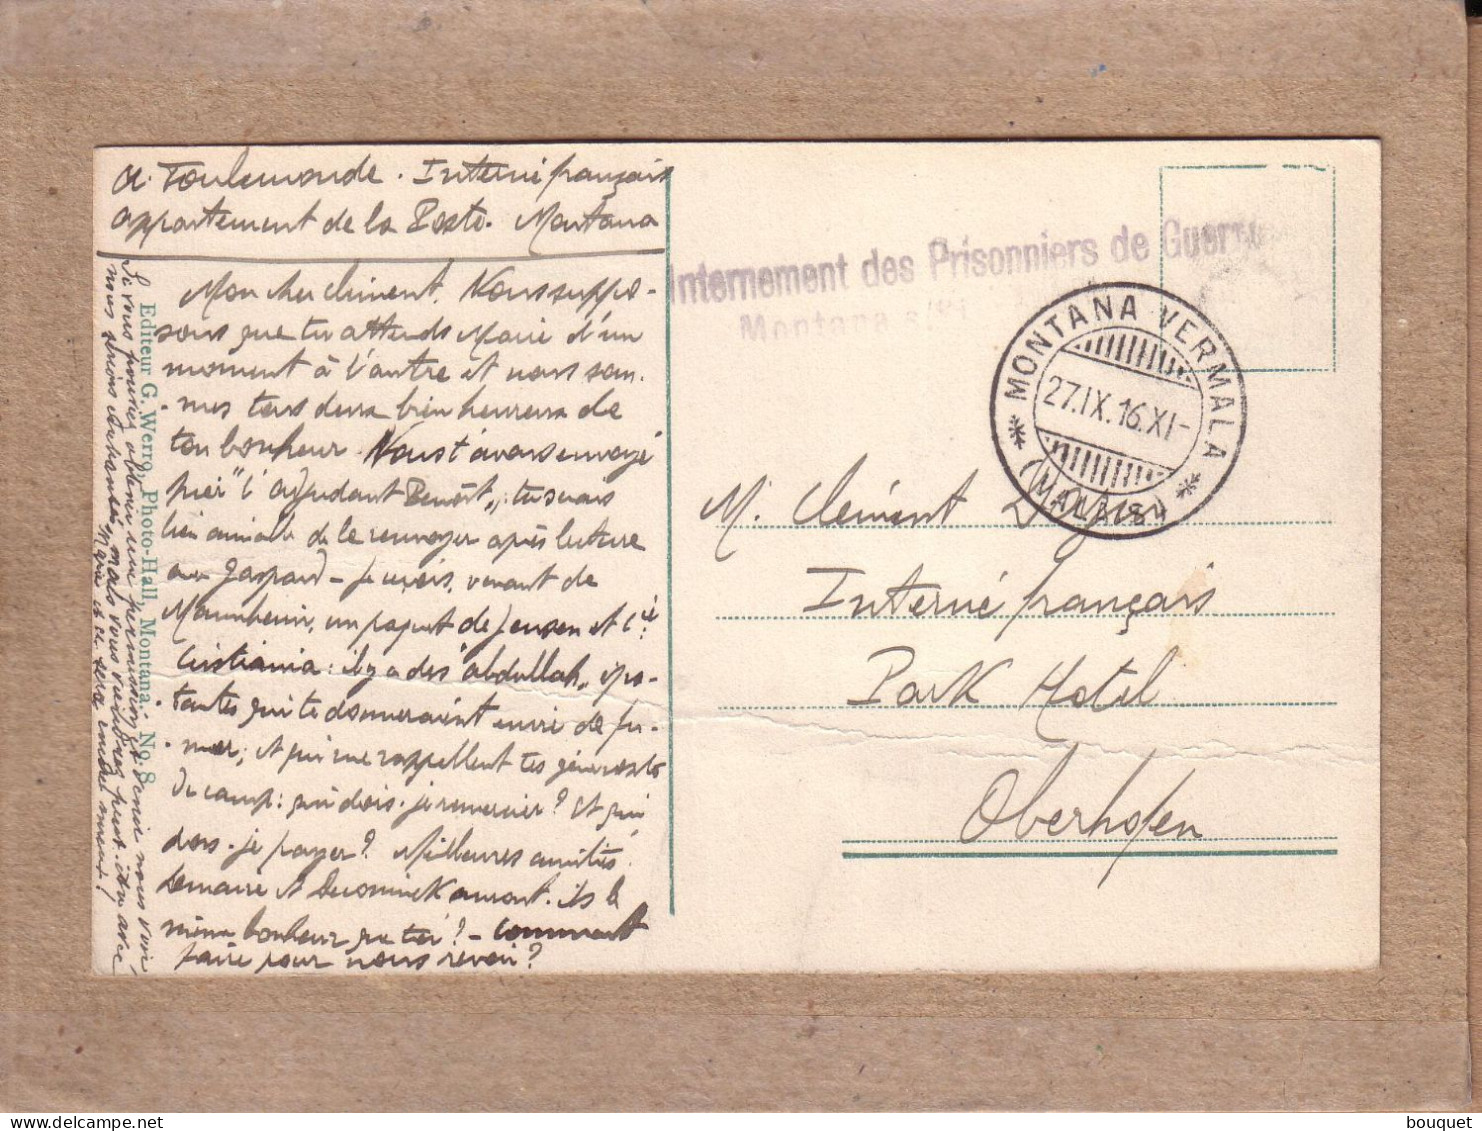 A. Toulemonde. Interné français
appartement de la Poste. Montana
Mon cher Clément. Nous suppo-
sons que tu attends Marie d'un
moment à l'autre et nous som-
mes tous deux bien heureux de
ton bonheur. Nous t'avons envoyé
hier "l'adjudant Benoît", tu serais
bien aimable de le renvoyer après lecture
au Gaspard - je reçois, venant de
Mannheim, un paquet de Jensen et Cie
Cristiania : il y a des "Abdullah", épa-
tantes qui te donneraient envie de fu-
mer; et qui me rappellent tes générosités
du camp : qui dois-je remercier? et qui
dois-je payer? Meilleures amitiés.
Lemaire et auront-ils le
même bonheur que toi? - Comment
faire pour nous revoir?
Si vous pouviez obtenir une permission et venir nous voir,
nous serions enchantés, mais vous viendrez peut-être avec
Marie et ce sera encore mieux!
Editeur G. Werro, Photo-Hall, Montana. No. 8
Internement des Prisonniers de Guerre
Montana s/
MONTANA VERMALA
27.IX.16.XI-
(VALAIS)
M. Clément
Interné français
Park Hotel
Oberhofen
bouquet